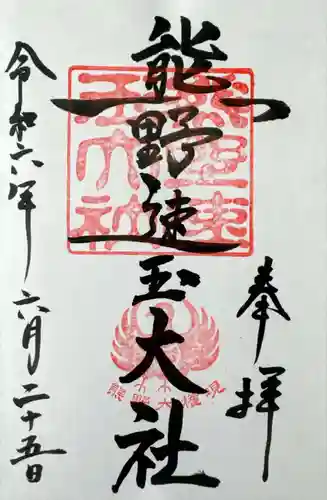 奉拝
熊野速玉大社
令和六年六月二十五日
熊野速玉大社
熊野大権現